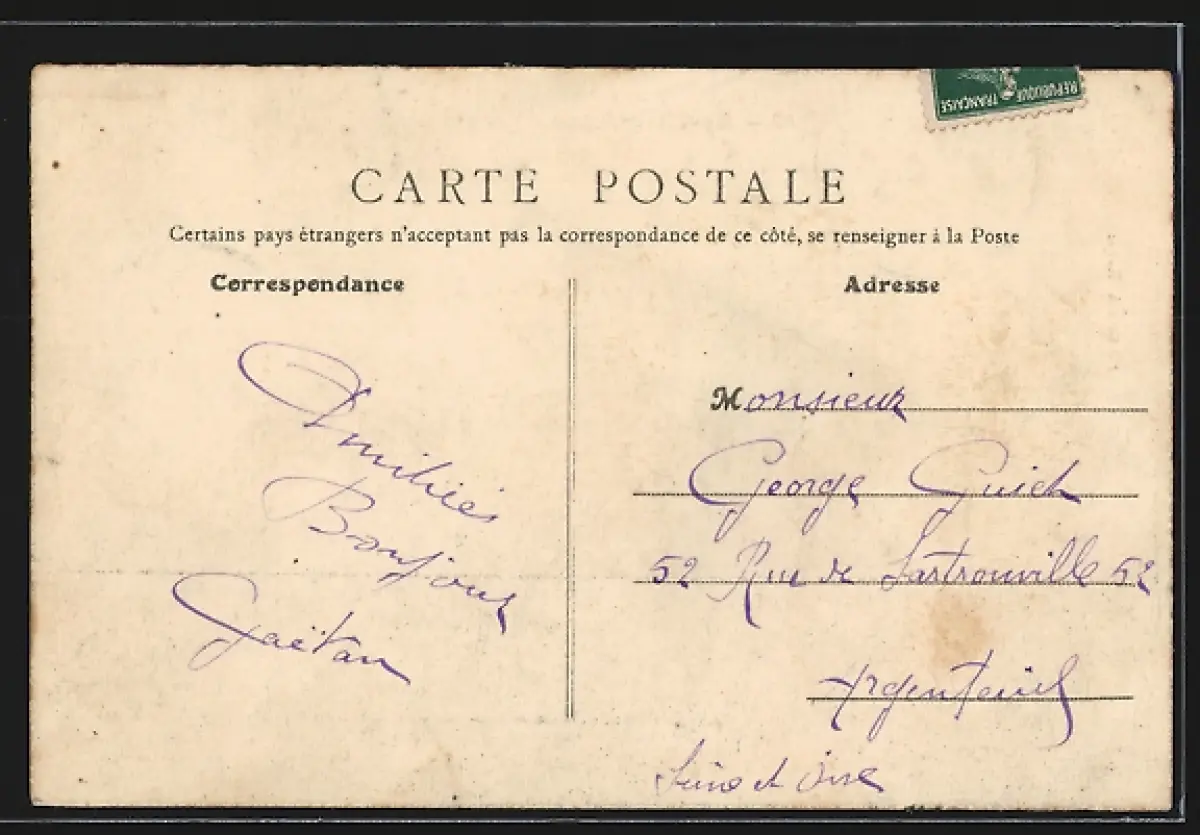 REPUBLIQUE FRANÇAISE
CARTE POSTALE
Certains pays étrangers n'acceptant pas la correspondance de ce côté, se renseigner à la Poste
Correspondance
Amitiés
Bonjour
Gaëtan
Adresse
Monsieur
George Guich
52 Rue de Sartrouville 52
Argenteuil
Seine et Oise